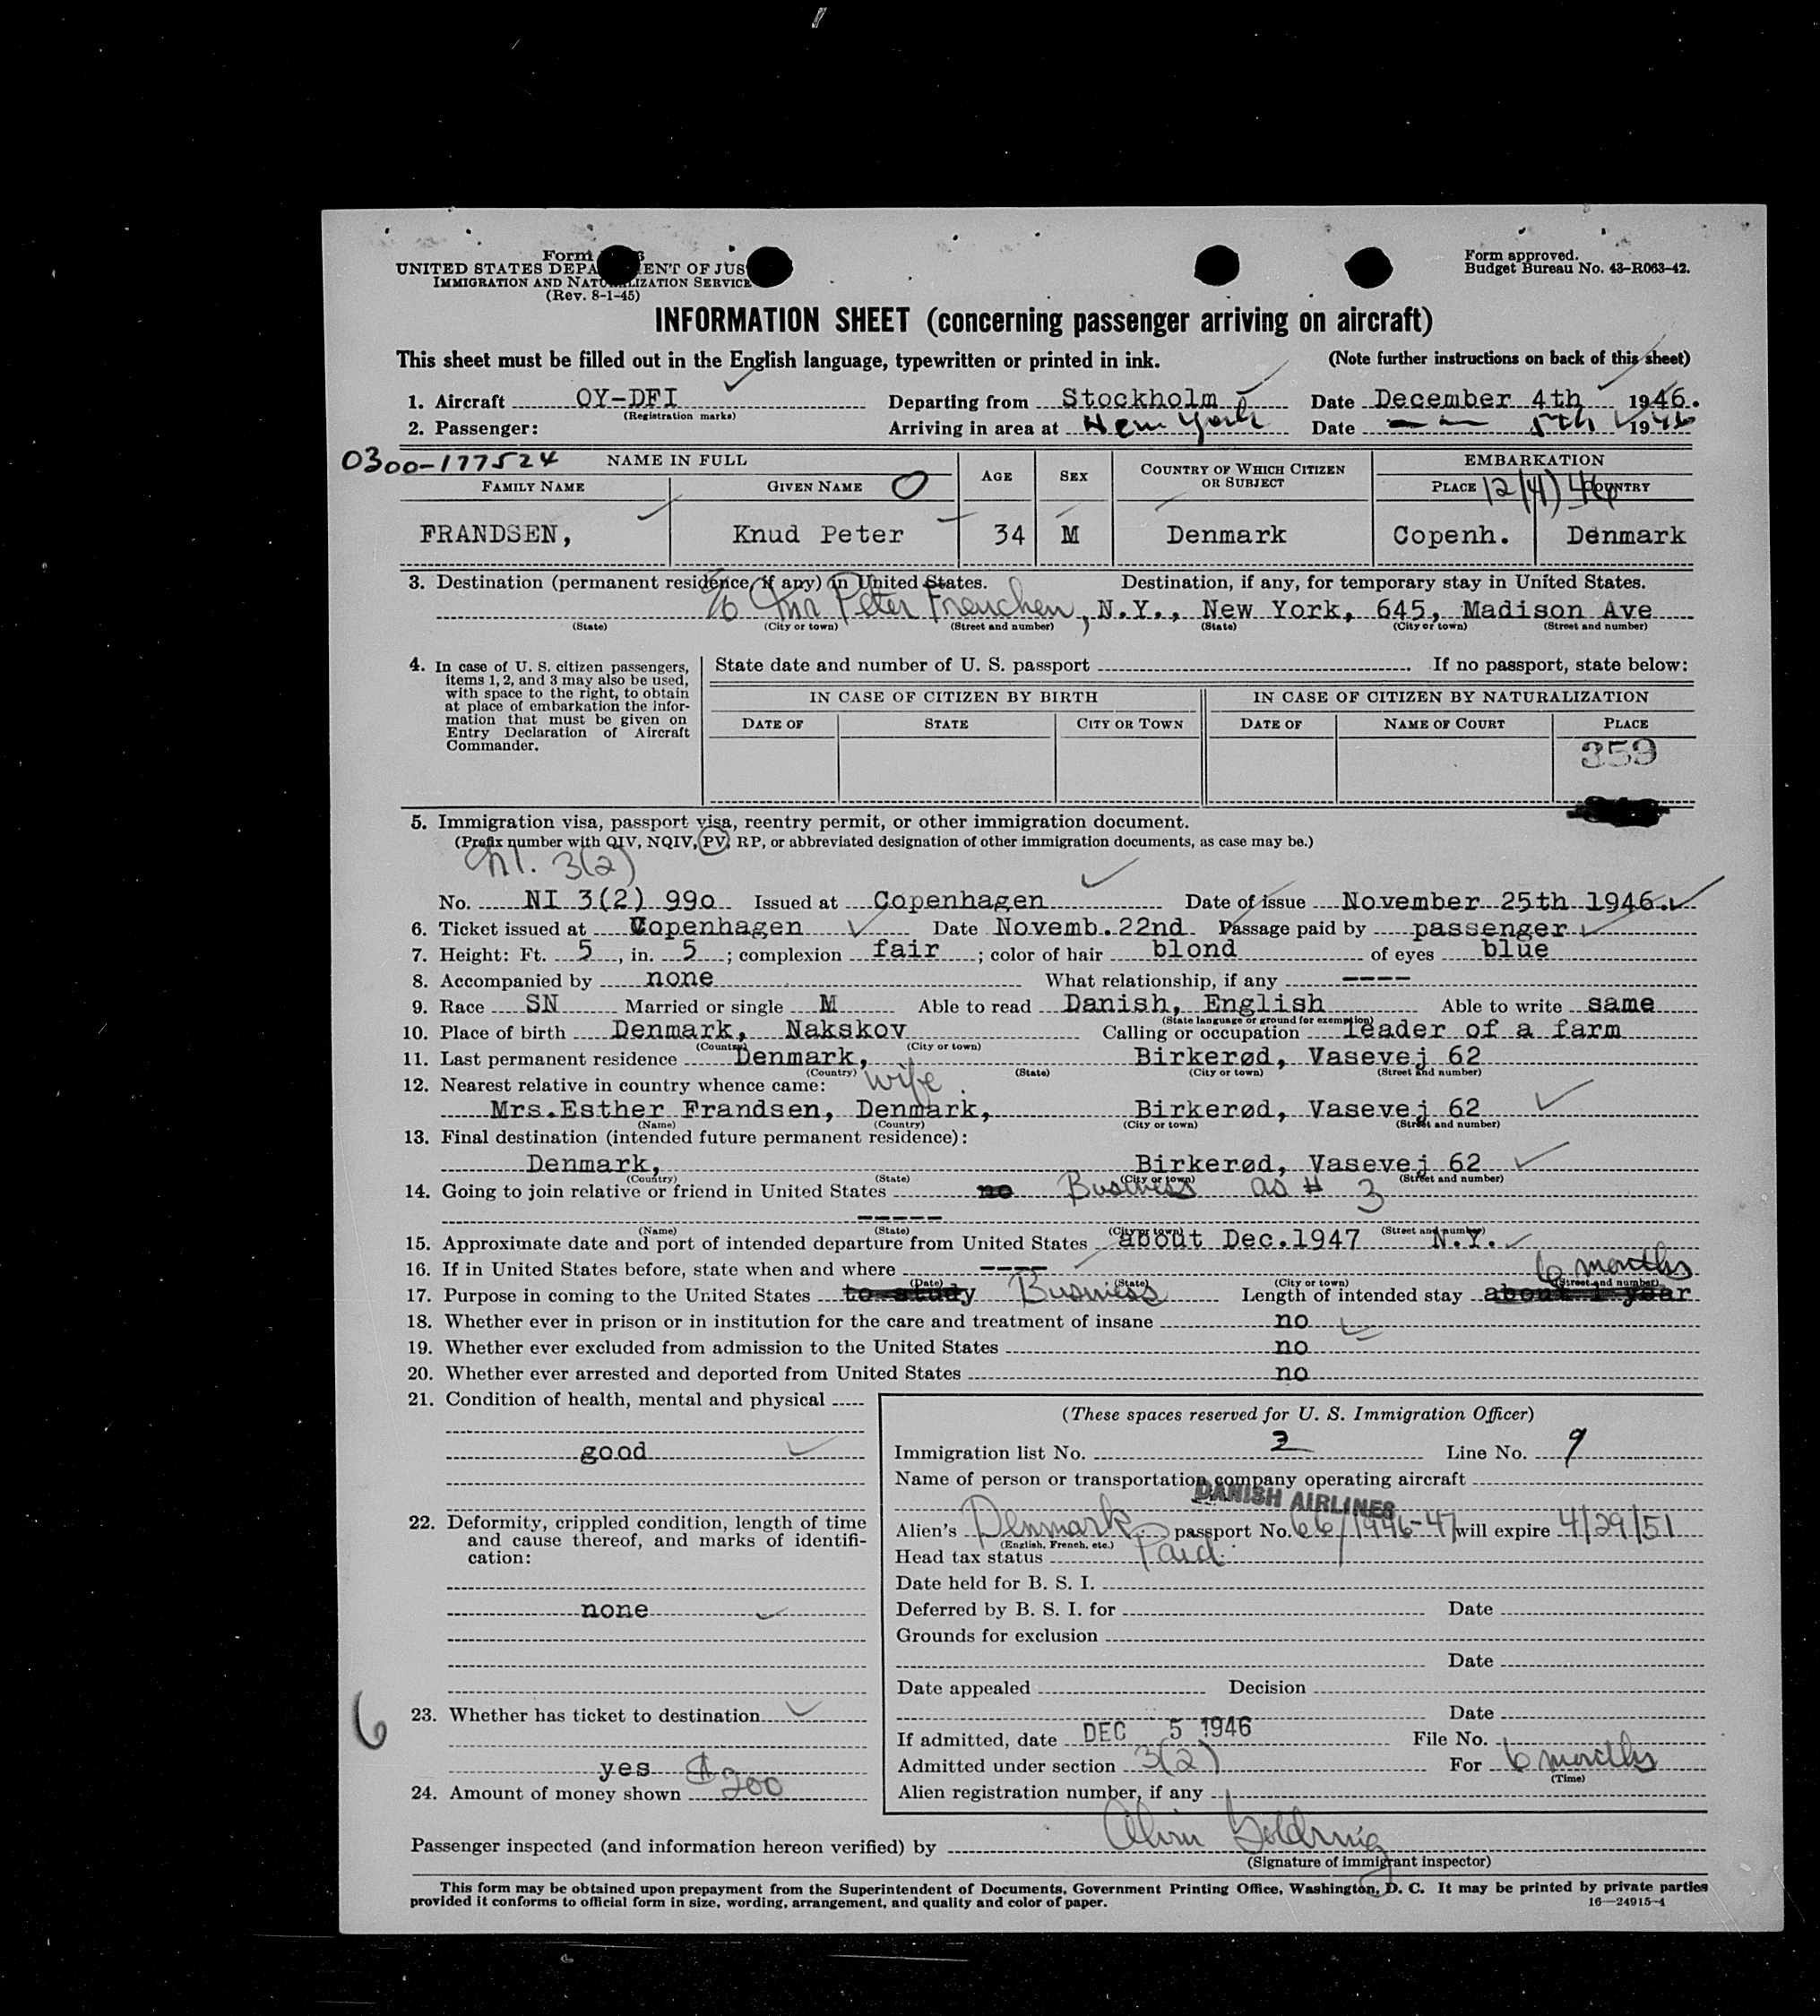 Form
UNITED STATES DEPA ENT OF JUS
IMMIGRATION AND NATU LIZATION SERVICE
(Rev. 8-1-45)
Form approved.
Budget Bureau No. 43-R063-42.
INFORMATION SHEET (concerning passenger arriving on aircraft)
This sheet must be filled out in the English language, typewritten or printed in ink. (Note further instructions on back of this sheet)
1. Aircraft OY-DFI Departing from Stockholm Date December 4th 1946.
(Registration marks)
2. Passenger: Arriving in area at New York Date — — 5th 1946
0300-177524 NAME IN FULL AGE SEX COUNTRY OF WHICH CITIZEN OR SUBJECT EMBARKATION
FAMILY NAME GIVEN NAME O PLACE 12/4/46 COUNTRY
FRANDSEN, Knud Peter 34 M Denmark Copenh. Denmark
3. Destination (permanent residence, if any) in United States. Destination, if any, for temporary stay in United States.
c/o Mr Peter Freuchen, N.Y., New York, 645, Madison Ave
(State) (City or town) (Street and number) (State) (City or town) (Street and number)
4. In case of U. S. citizen passengers, items 1, 2, and 3 may also be used, with space to the right, to obtain at place of embarkation the information that must be given on Entry Declaration of Aircraft Commander.
State date and number of U. S. passport If no passport, state below:
IN CASE OF CITIZEN BY BIRTH IN CASE OF CITIZEN BY NATURALIZATION
DATE OF STATE CITY OR TOWN DATE OF NAME OF COURT PLACE
359
5. Immigration visa, passport visa, reentry permit, or other immigration document.
(Prefix number with QIV, NQIV, PV, RP, or abbreviated designation of other immigration documents, as case may be.)
NI. 3(2)
No. NI 3(2) 990 Issued at Copenhagen Date of issue November 25th 1946.
6. Ticket issued at Copenhagen Date Novemb.22nd Passage paid by passenger
7. Height: Ft. 5, in. 5; complexion fair; color of hair blond of eyes blue
8. Accompanied by none What relationship, if any ----
9. Race SN Married or single M Able to read Danish, English Able to write same
(State language or ground for exemption)
10. Place of birth Denmark, Nakskov Calling or occupation leader of a farm
(Country) (City or town)
11. Last permanent residence Denmark, Birkerød, Vasevej 62
(Country) (State) (City or town) (Street and number)
12. Nearest relative in country whence came: wife
Mrs.Esther Frandsen, Denmark, Birkerød, Vasevej 62
(Name) (Country) (City or town) (Street and number)
13. Final destination (intended future permanent residence):
Denmark, Birkerød, Vasevej 62
(Country) (State) (City or town) (Street and number)
14. Going to join relative or friend in United States no Business as # 3
-----
(Name) (State) (City or town) (Street and number)
15. Approximate date and port of intended departure from United States about Dec.1947 N.Y.
16. If in United States before, state when and where ----
(Date) (State) (City or town) (Street and number)
6 months
17. Purpose in coming to the United States to study Business Length of intended stay about 1 year
18. Whether ever in prison or in institution for the care and treatment of insane no
19. Whether ever excluded from admission to the United States no
20. Whether ever arrested and deported from United States no
21. Condition of health, mental and physical
good
22. Deformity, crippled condition, length of time and cause thereof, and marks of identification:
none
23. Whether has ticket to destination
yes
24. Amount of money shown $200
6
(These spaces reserved for U. S. Immigration Officer)
Immigration list No. 2 Line No. 9
Name of person or transportation company operating aircraft
DANISH AIRLINES
Alien's Denmark passport No. 66/1946-47 will expire 4/29/51
(English, French, etc.)
Head tax status Paid
Date held for B. S. I.
Deferred by B. S. I. for Date
Grounds for exclusion
Date
Date appealed Decision
Date
If admitted, date DEC 5 1946 File No.
Admitted under section 3(2) For 6 months
(Time)
Alien registration number, if any
Passenger inspected (and information hereon verified) by Alvin Goldring
(Signature of immigrant inspector)
This form may be obtained upon prepayment from the Superintendent of Documents, Government Printing Office, Washington, D. C. It may be printed by private parties
provided it conforms to official form in size, wording, arrangement, and quality and color of paper. 16—24915-4